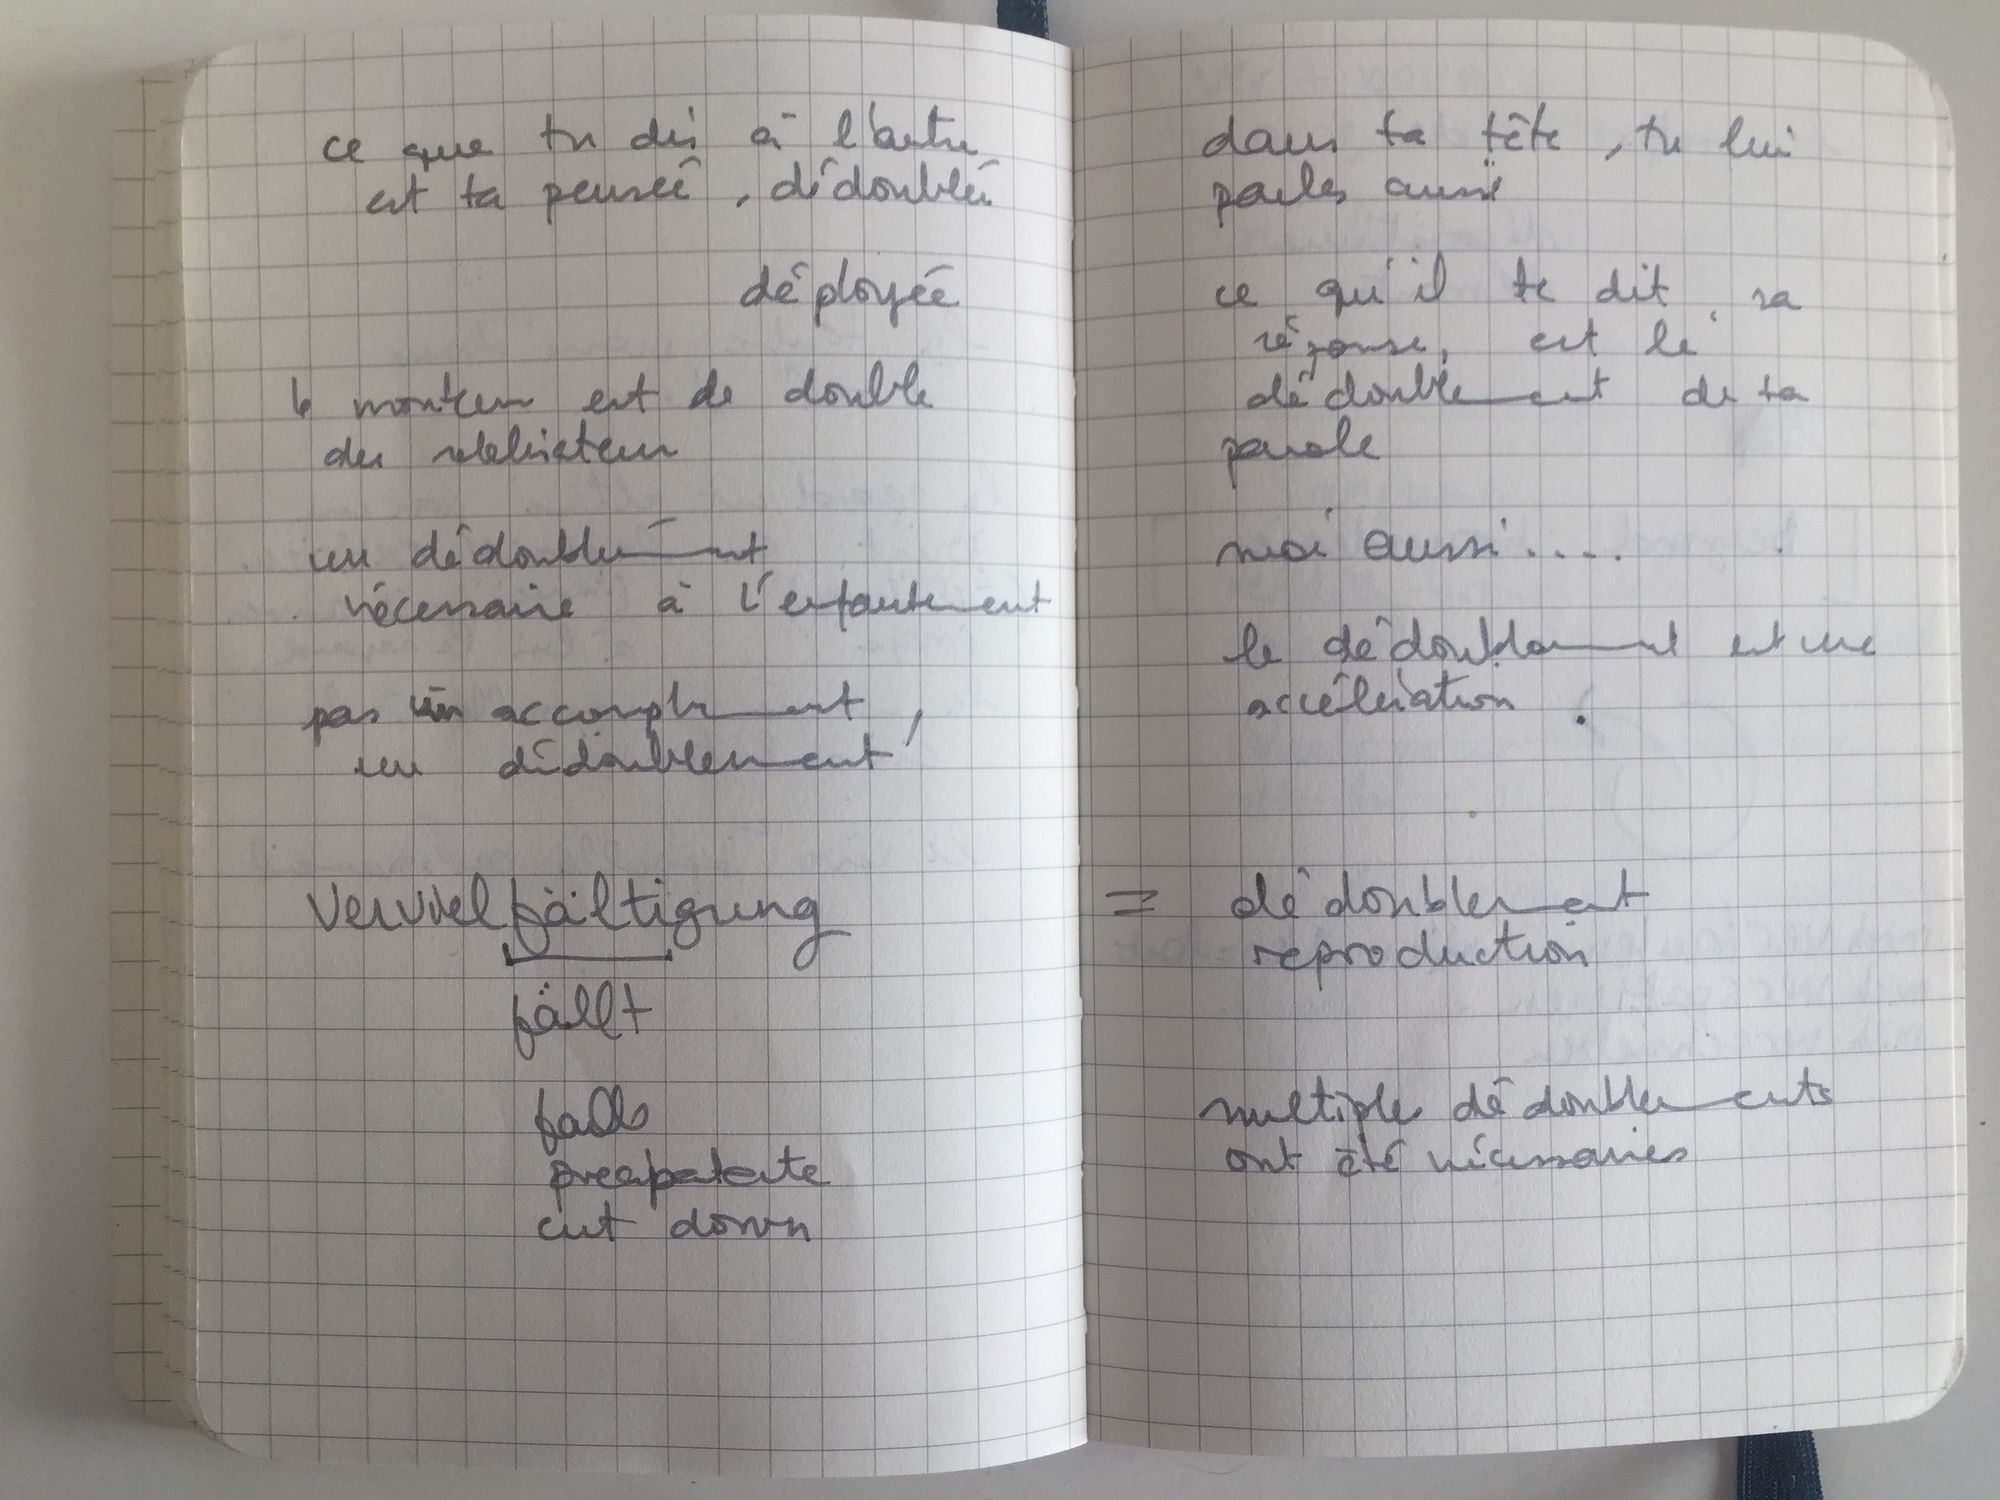 ce que tu dis à l'autre
est ta pensée, dédoublée
déployée
le monteur est de double
du
un dédoublement
nécessaire à l'enfantement
pas un accouplement,
un dédoublement
Vervielfältigung
fällt
falls
cut down
dans ta tête, tu lui
parles aussi
ce qu'il te dit, sa
réponse, est le
dédoublement de ta
parole
moi aussi....
le dédoublement est une
accélération.
= dédoublement
reproduction
multiples dédoublements
ont été nécessaires